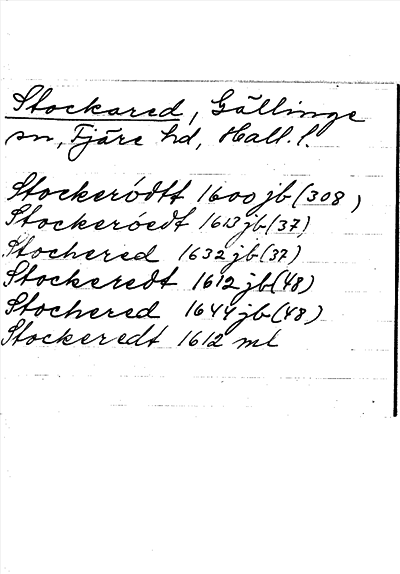 Stockared, Gällinge
sn, Fjäre hd, Hall. l.
Stockerödtt 1600 jb (308)
Stockeröedt 1613 jb (37)
Stochered 1632 jb (37)
Stockeredt 1612 jb (48)
Stochered 1644 jb (48)
Stockeredt 1612 ml